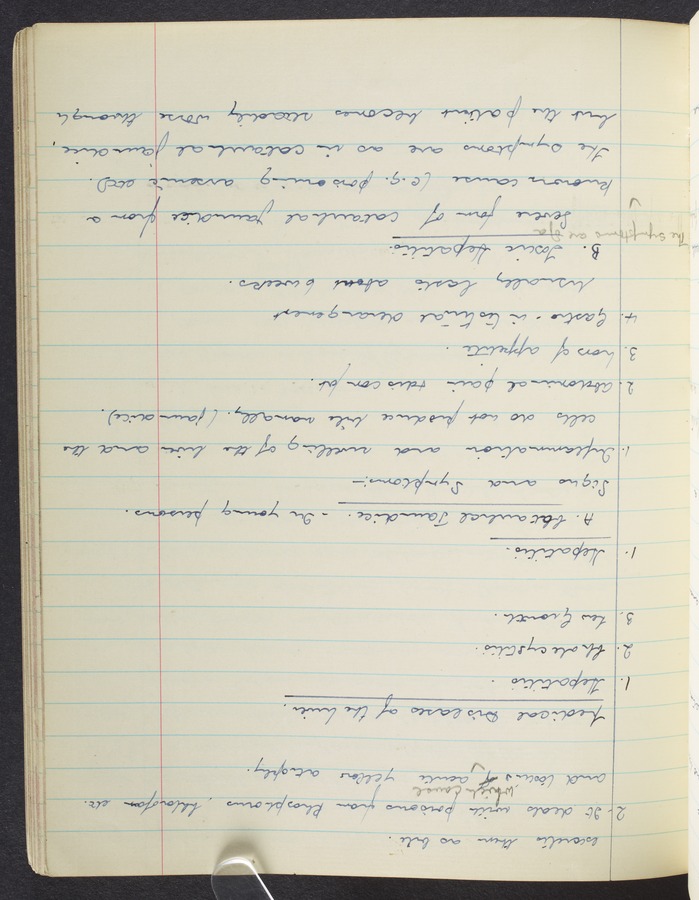 excretes them as bile.
2. It deals with poisons from Phosphorus, Chloroform etc.
which cause
and toxins of acute yellow atrophy.
Medical Diseases of the Liver.
1. Hepatitis.
2. Cholecystitis.
3. New Growth.
1. Hepatitis.
A. Catarrhal Jaundice. - In young persons.
Signs and Symptoms:-
1. Inflammation and swelling of the liver and the
cells do not produce bile normally. (jaundice).
2. Abdominal pain + discomfort.
3. Loss of appetite.
4. Gastro-intestinal derangement
Usually lasts about 6 weeks.
B. Toxic Hepatitis.
The symptoms are of a
Severe form of catarrhal jaundice from a
known cause (e.g. poisoning arsenic etc).
The symptoms are as in catarrhal jaundice,
but the patient becomes steadily worse through